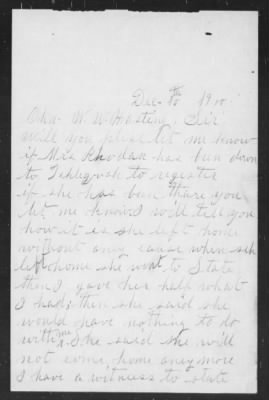 Dec. 8th 1910.
W. W. Hastins, Sir
will you pleas let me know
if Mrs Rhodar has ben down
to Tahlegvah to register
if she has ben thare you
let me know I will tell you
how it is she left home
without any cause when seh
left home she went to State
then I gave her half what
I had; then she said she
would have nothing to do
with me & she said she will
not come home anymore
I have a witness to state